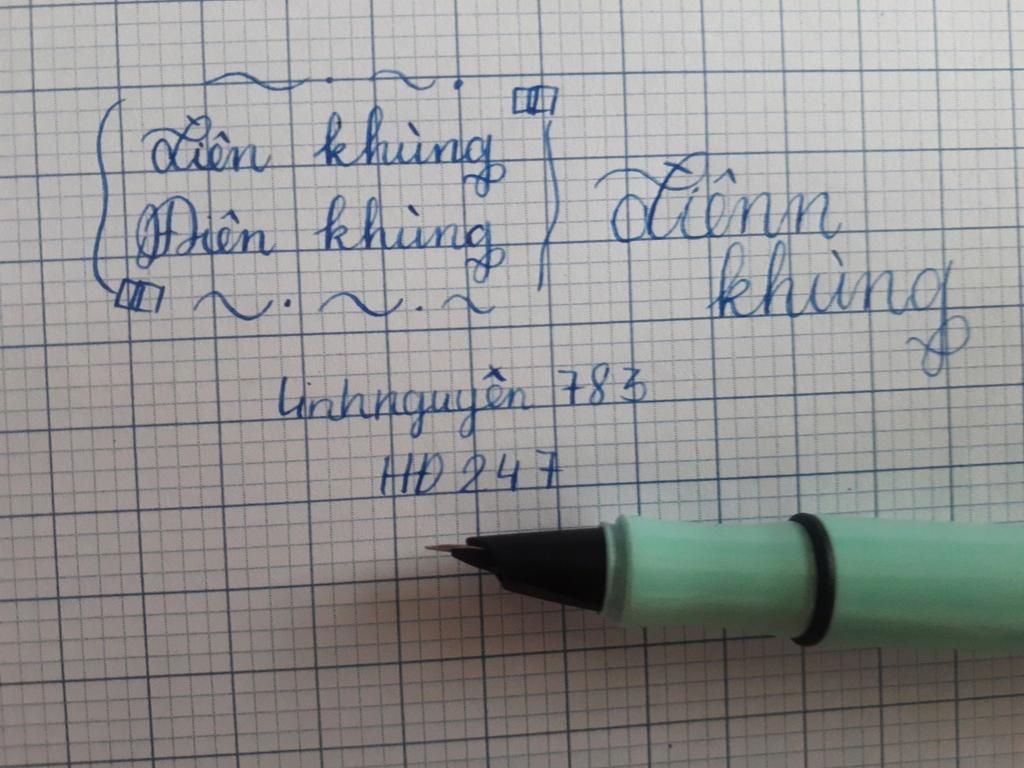 Điên khùng
Điên khùng
Điênn
khùng
Linhnguyễn 783
HD 247